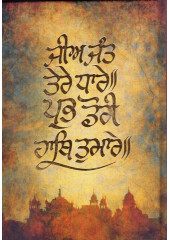 ਜੀਅ ਜੰਤ
ਤੇਰੇ ਧਾਰੇ॥
ਪ੍ਰਭ ਡੋਰੀ
ਹਾਥਿ ਤੁਮਾਰੇ॥